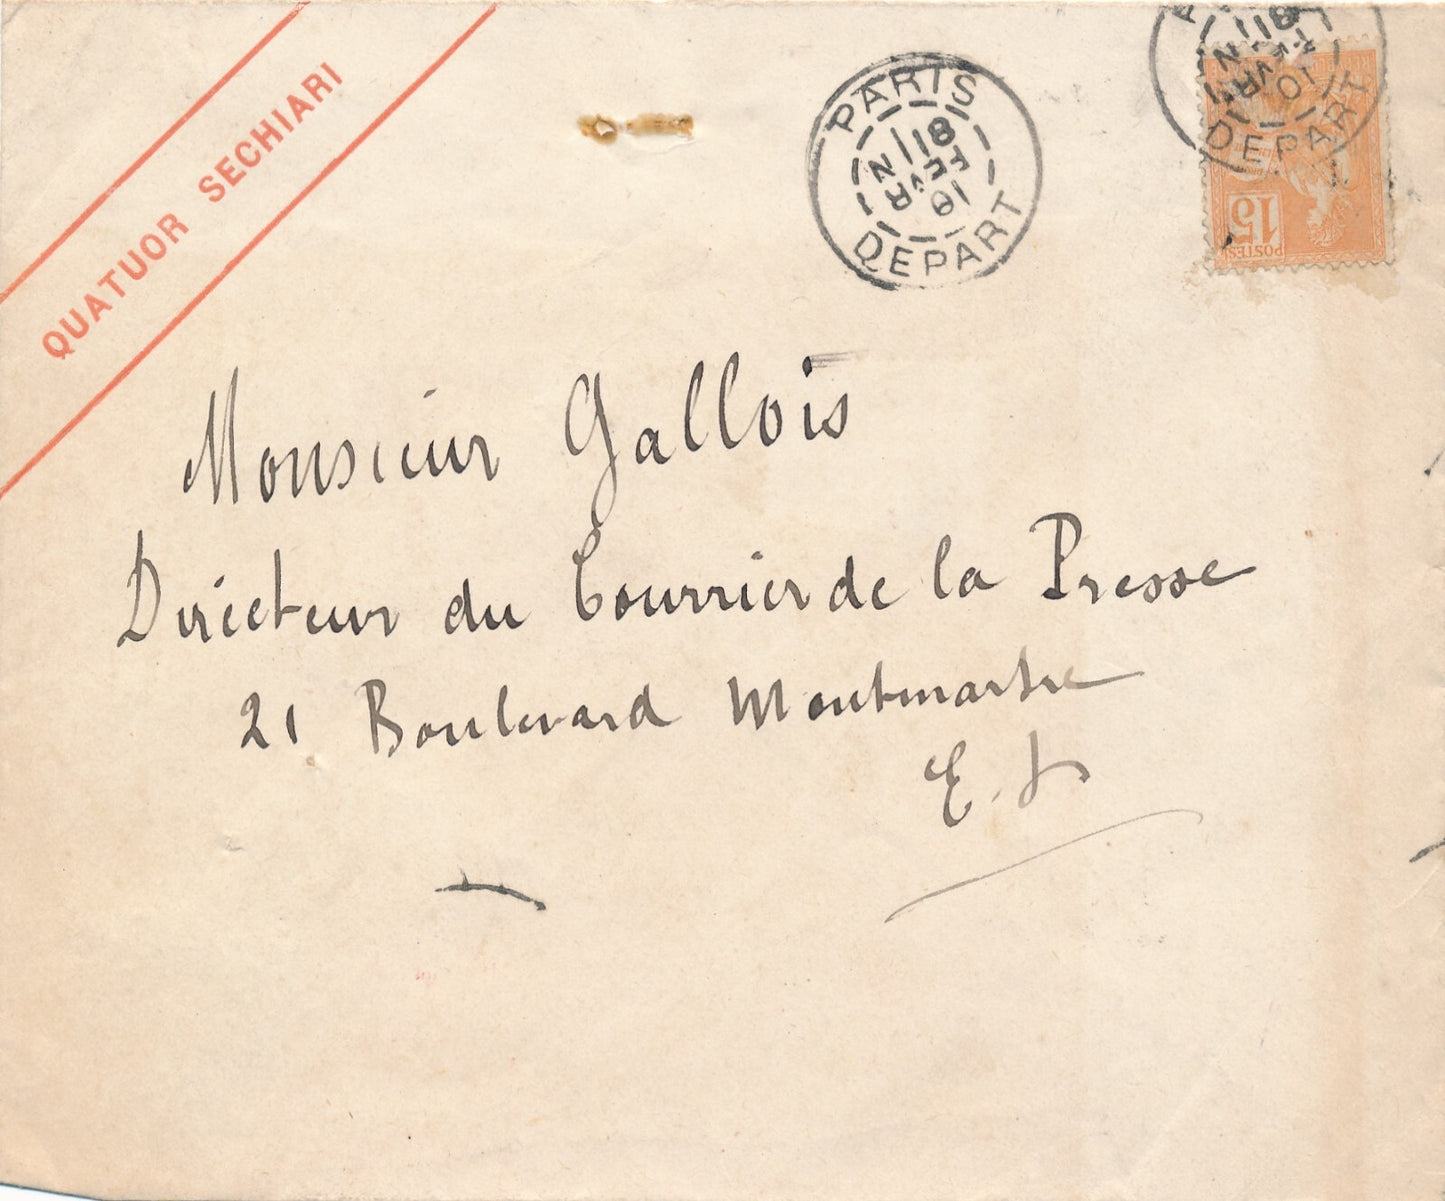 QUATUOR SECHIARI
PARIS
8 11 N
FEVR
DEPART
DEPART
15
POSTES
Monsieur Gallois
Directeur du Courrier de la Presse
21 Boulevard Montmartre